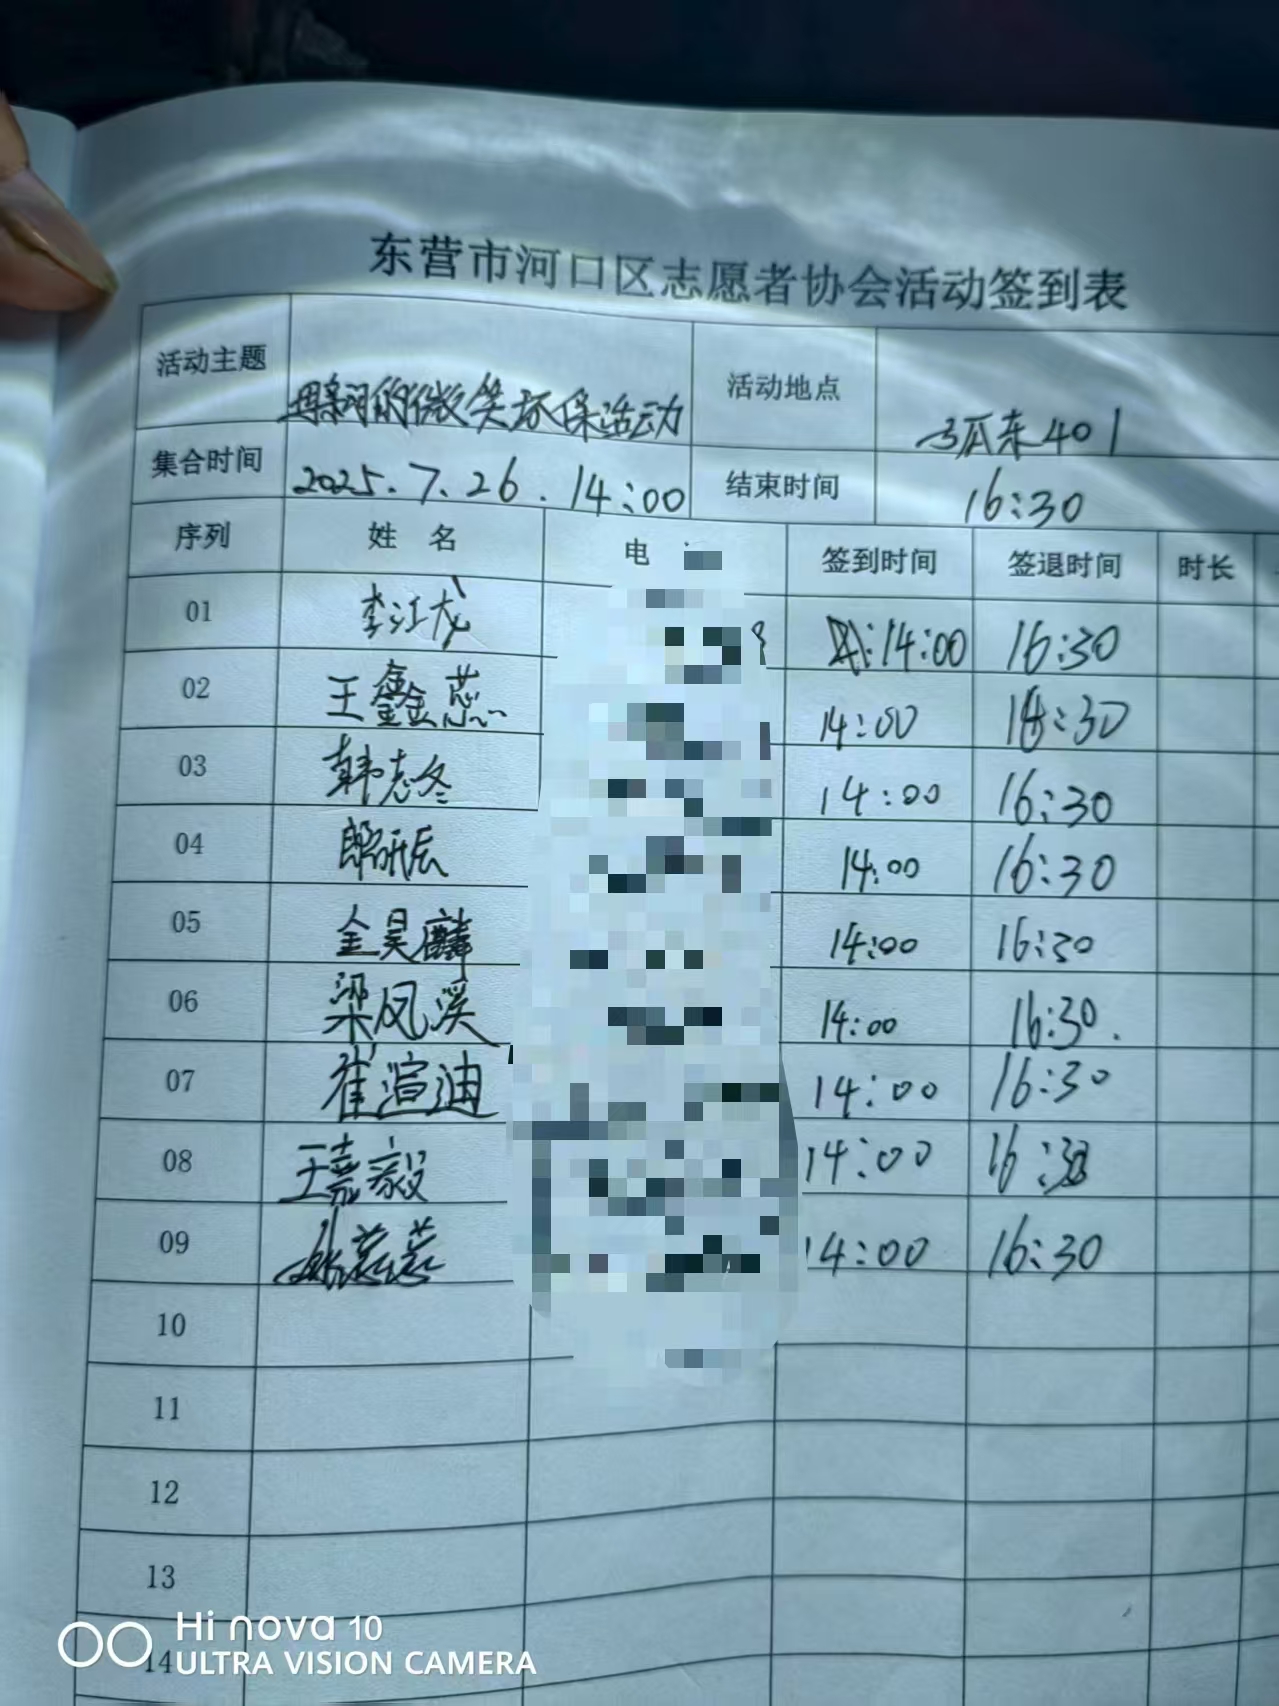 东营市河口区志愿者协会活动签到表
活动主题 的微笑环保活动 活动地点 孤东401
集合时间 2025.7.26.14:00 结束时间 16:30
序列 姓 名 电 签到时间 签退时间 时长
01 李江龙 14:00 16:30
02 王鑫蕊 14:00 16:30
03 韩志冬 14:00 16:30
04 14:00 16:30
05 金昊麟 14:00 16:30
06 梁凤溪 14:00 16:30.
07 崔渲迪 14:00 16:30
08 王嘉毅 14:00 16:30
09 14:00 16:30
10
11
12
13
14
Hi nova 10
ULTRA VISION CAMERA